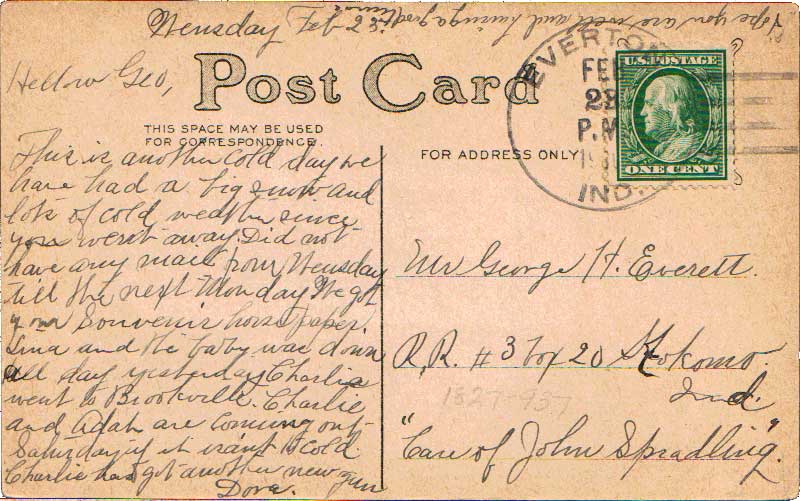 Hope you are well and having a good time
Wensday Feb 23
Hellow Geo,
Post Card
THIS SPACE MAY BE USED
FOR CORRESPONDENCE.
FOR ADDRESS ONLY
EVERTON
FEB
P.M.
IND.
U.S. POSTAGE
ONE CENT
This is another cold day we
have had a big snow and
lots of cold weather since
you went away. Did not
have any mail from Wensday
till the next Monday We got
your Souvenir horse paper.
and the baby was down
all day yesterday Charlie
went to Brookville. Charlie
and Adah are coming out
Saturday if it isant to cold
Charlie has got another new gun
Dora.
Mr George H. Everett.
R.R. #3 box 20 Kokomo
Ind.
"Care of John Spradling".
1827-737